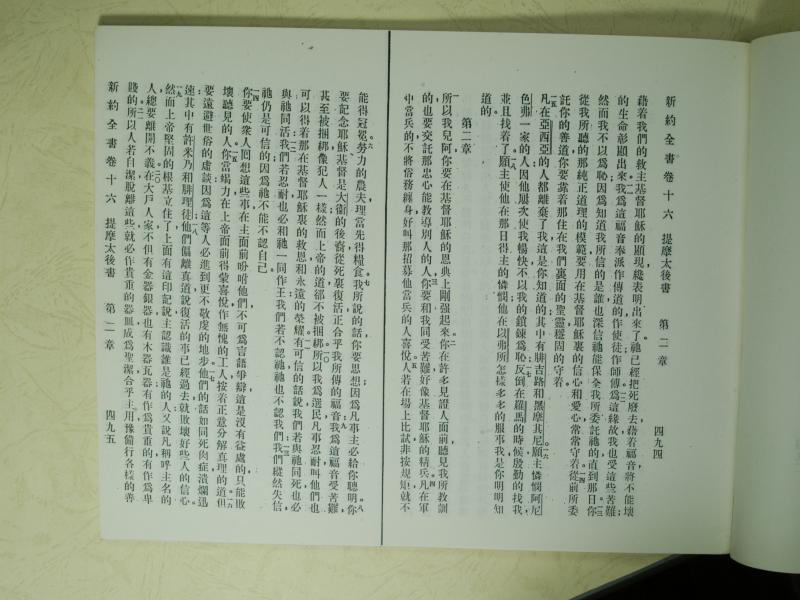 新約全書卷十六 提摩太後書 第二章 四九四
藉着我們的救主基督耶穌的顯現纔表明出來了祂已經把死廢去藉着福音將不能壞
的生命彰顯出來我爲這福音奉派作傳道的作使徒作師傅爲這緣故我也受這些苦難
然而我不以爲恥因爲知道我所信的是誰也深信祂能保全我所委託祂的直到那日你
從我所聽的那純正道理的模範要用在基督耶穌裏的信心和愛心常常守着從前所委
託你的善道你要靠着那住在我們裏面的聖靈穩固的守着
凡在亞西亞的人都離棄了我這是你知道的其中有腓吉路和黑摩其尼願主憐憫阿尼
色弗一家的人因他屢次使我暢快不以我的鎖鍊爲恥反倒在羅馬的時候殷勤的找我
並且找着了願主使他在那日得主的憐憫他在以弗所怎樣多多的服事我是你明明知
道的
第二章
所以我兒阿你要在基督耶穌的恩典上剛强起來你在許多見證人面前聽見我所教訓
的也要交託那忠心能教導別人的人你要和我同受苦難好像基督耶穌的精兵凡在軍
中當兵的不將俗務纏身好叫那招募他當兵的人喜悅人若在場上比試非按規矩就不
能得冠冕勞力的農夫理當先得糧食我所說的話你要思想因爲凡事主必給你聰明你
要記念耶穌基督是大衞的後裔從死裏復活正合乎我所傳的福音我爲這福音受苦難
甚至被捆綁像犯人一樣然而上帝的道卻不被捆綁所以我爲選民凡事忍耐叫他們也
可以得着那在基督耶穌裏的救恩和永遠的榮耀有可信的話說我們若與祂同死也必
與祂同活我們若忍耐也必和祂一同作王我們若不認祂祂也不認我們我們縱然失信
祂仍是可信的因爲祂不能不認自己
你要使衆人回想這些事在主面前吩咐他們不可爲言語爭辯這是沒有益處的只能敗
壞聽見的人你當竭力在上帝面前得蒙喜悅作無愧的工人按着正意分解真理的道但
要遠避世俗的虛談因爲這等人必進到更不敬虔的地步他們的話如同死肉症潰爛迅
速其中有許米乃和腓理徒他們偏離真道說復活的事已經過去就敗壞好些人的信心
然而上帝堅固的根基立住了上面有這印記說主認識誰是祂的人又說凡稱呼主名的
人總要離開不義在大戶人家不但有金器銀器也有木器瓦器有作爲貴重的有作爲卑
賤的所以人若自潔脫離這些就必作貴重的器皿成爲聖潔合乎主用豫備行各樣的善
新約全書卷十六 提摩太後書 第二章 四九五